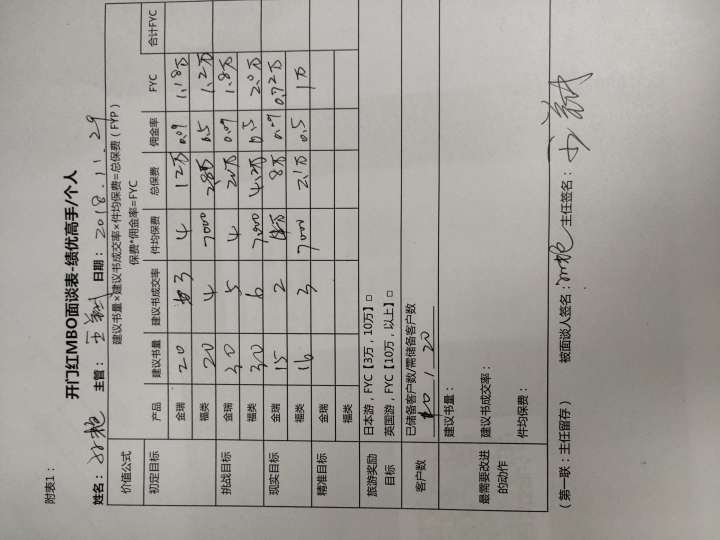 附表1：
开门红MBO面谈表-绩优高手/个人
姓名： 主管： 日期：2018.11.29
价值公式 建议书量×建议书成交率×件均保费=总保费（FYP）
保费*佣金率=FYC
产品 建议书量 建议书成交率 件均保费 总保费 佣金率 FYC 合计FYC
初定目标 金瑞 20 3 4 12万 0.09 1.18万
福类 20 4 7000 2.8万 0.5 1.2万
挑战目标 金瑞 30 5 4 20万 0.09 1.8万
福类 30 6 7000 4.2万 0.5 2.0万
现实目标 金瑞 15 2 4万 8万 0.09 0.72万
福类 16 3 7000 2.1万 0.5 1万
精准目标 金瑞
福类
旅游奖励目标 日本游，FYC【3万，10万】□
英国游，FYC【10万，以上】□
客户数 已储备客户数/需储备客户数
/ 20
最需要改进的动作 建议书量：
建议书成交率：
件均保费：
（第一联：主任留存） 被面谈人签名： 主任签名：